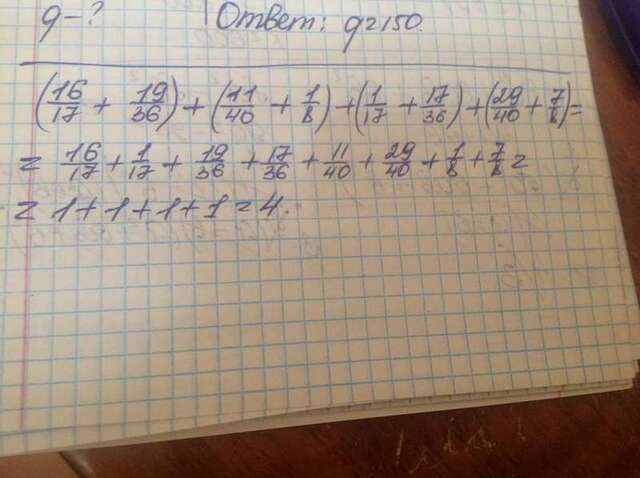 g-? Ответ: g=150.
(16/17 + 19/36) + (11/40 + 1/8) + (1/17 + 17/36) + (29/40 + 7/8) =
= 16/17 + 1/17 + 19/36 + 17/36 + 11/40 + 29/40 + 1/8 + 7/8 =
= 1+1+1+1=4.